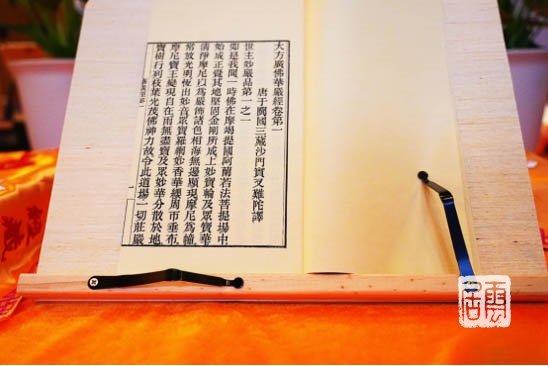 大方廣佛華嚴經卷第一
唐于闐國三藏沙門實叉難陀譯
世主妙嚴品第一之一
如是我聞一時佛在摩竭提國阿蘭若法菩提場中
始成正覺其地堅固金剛所成上妙寶輪及眾寶華
清淨摩尼以爲嚴飾諸色相海無邊顯現摩尼爲幢
常放光明恆出妙音眾寶羅網妙香華纓周帀垂布
摩尼寶王變現自在雨無盡寶及眾妙華分散於地
寶樹行列枝葉光茂佛神力故令此道場一切莊嚴
一
雲居